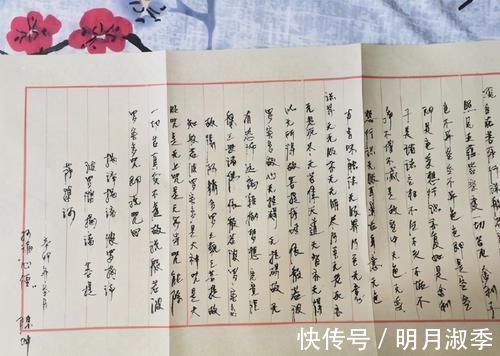 观自在菩萨行深般若
照见五蕴皆空度一切苦厄舍利子
色不异空空不异色色即是空空
即是色受想行识亦复如是舍利
子是诸法空相不生不灭不垢不
净不增不减是故空中无色无受
想行识无眼耳鼻舌身意无色
声香味触法无眼界乃至无意
识界无无明亦无无明尽乃至无老死亦
无老死尽无苦集灭道无智亦无得
以无所得故菩提萨埵依般若波
罗蜜多故心无挂碍无挂碍故无
有恐怖远离颠倒梦想究竟涅
槃三世诸佛依般若波罗蜜多
故得阿耨多罗三藐三菩提故
知般若波罗蜜多是大神咒是大
明咒是无上咒是无等等咒能除
一切苦真实不虚故说般若波
罗蜜多咒即说咒曰
揭谛揭谛 波罗揭谛
波罗僧揭谛 菩提
萨婆诃
辛卯年
心经 陈坤
快传号/明月淑季